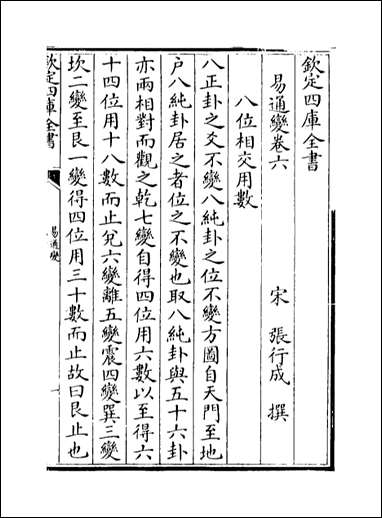 欽定四庫全書
易通變卷六
宋 張行成 撰
八位相交用數
八正卦之爻不變八純卦之位不變方圖自天門至地
户八純卦居之者位之不變也取八純卦與五十六卦
亦兩相對而觀之乾七變自得四位用六數以至得六
十四位用十八數而止兌六變離五變震四變巽三變
坎二變至艮一變得四位用三十數而止故曰艮止也
欽定四庫全書
易通變
一